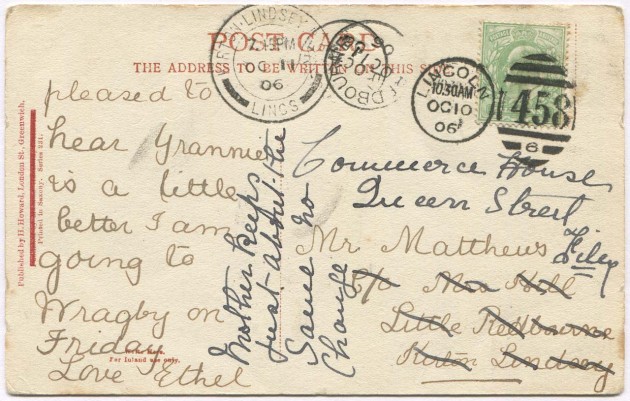 POST CARD
THE ADDRESS TO BE WRITTEN ON THIS SIDE
KIRTON-LINDSEY
7.45PM
OC 11
06
LINCS
LINCOLN
10.30AM
OC 10
06
458
6
pleased to
hear Grannie
is a little
better I am
going to
Wragby on
Friday
Love Ethel
Mother keeps
just about the
Same no
Change
Commerce House
Queen Street
Filey
Mr Matthews
c/o Mrs Hill
Little Redbourne
Kirton Lindsey
Published by H. Howard, London St., Greenwich.
Printed in Saxony. Series 231.
For Inland use only.